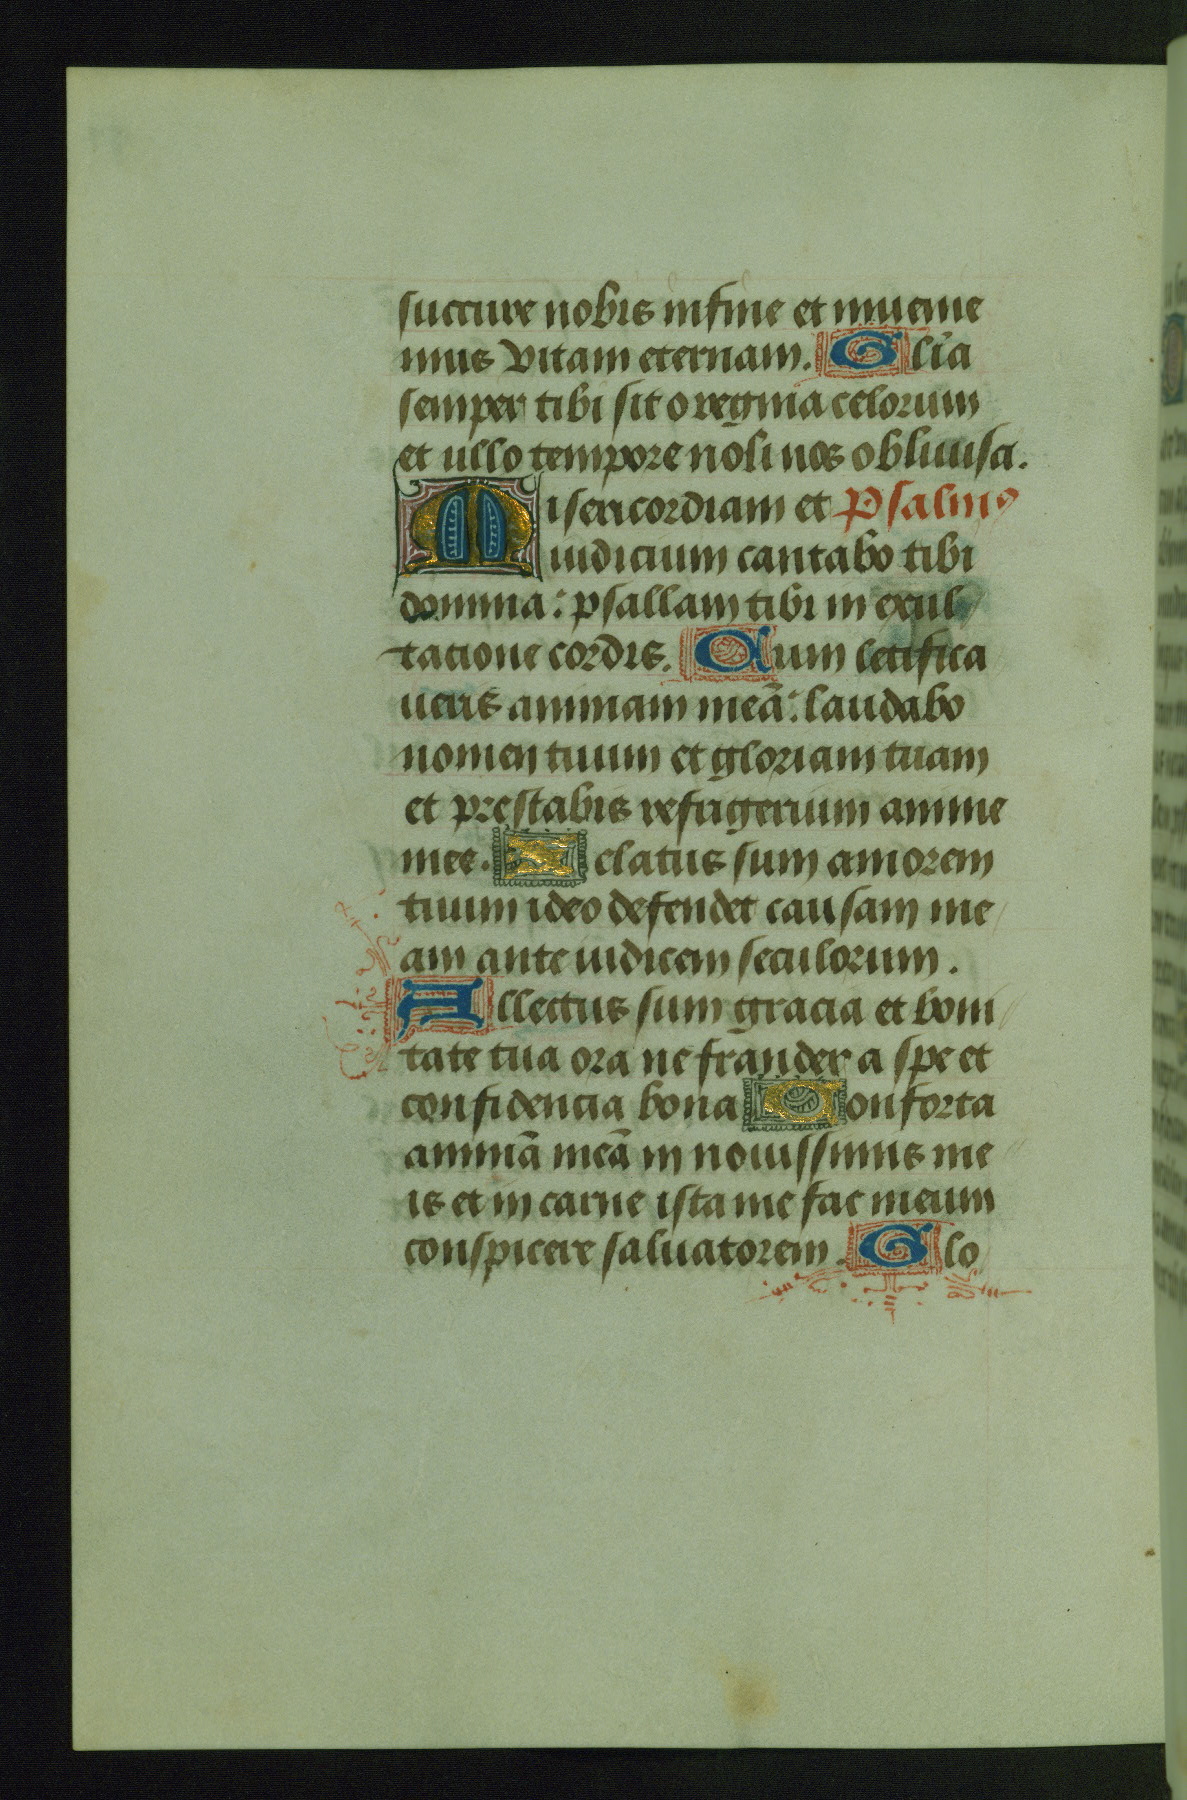 succure nobis in fine et inuenie
mus vitam eternam. Glīa
semper tibi sit o regina celorum
et ullo tempore noli nos obliuisci.
Misericordiam et Psalmꝰ
iudicium cantabo tibi
domina: psallam tibi in exul
tacione cordis. Cum letifica
ueris animam meā: laudabo
nomen tuum et gloriam tuam
et prestabis refrigerium anime
mee. Zelatus sum amorem
tuum ideo defendet causam me
am ante iudicem seculorum.
Allectus sum gracia et boni
tate tua ora ne frauder a spe et
confidencia bona Conforta
animā meā in nouissimis me
is et in carne ista me fac meum
conspicere saluatorem. Glo